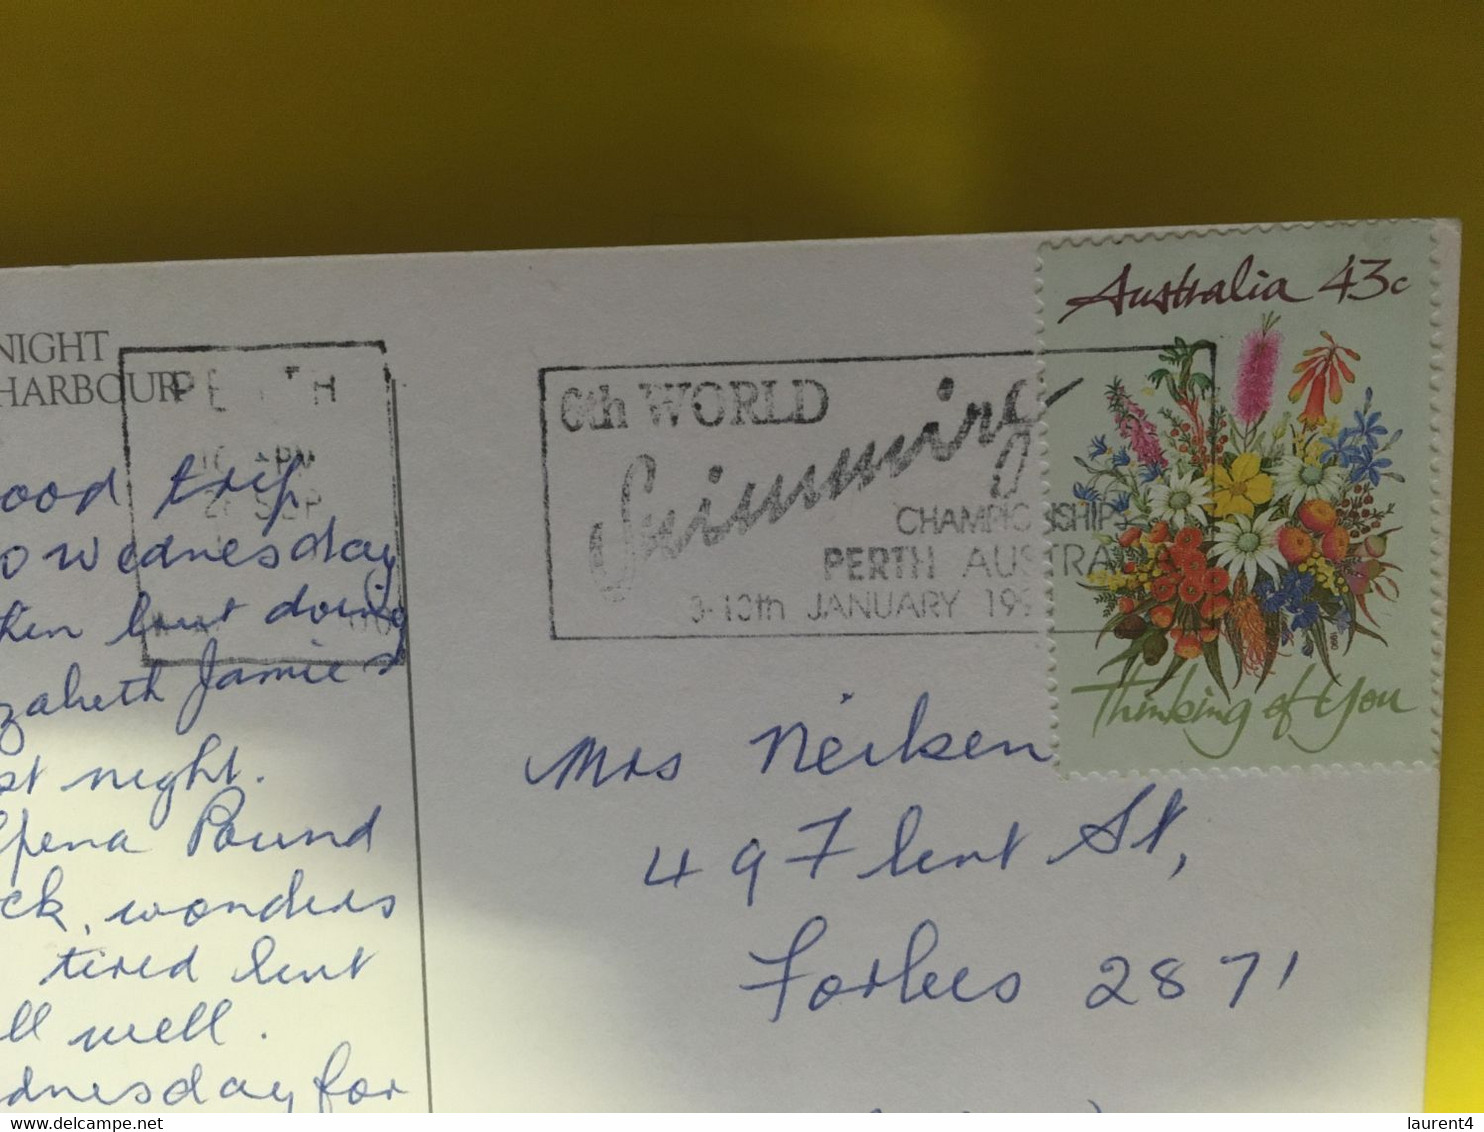 NIGHT
HARBOUR
PERTH
6th WORLD
Swimming
CHAMPIONSHIPS
PERTH AUSTRALIA
JANUARY 199
Australia 43c
Thinking of You
1990
ood trip
o Wednesday
but doing
zabeth Jamie &
st night.
lpena Pound
ck, wonders
tired but
ll well.
dnesday for
Mrs Neilsen
49 Flint St,
Forbes 2871
laurent4
delcampe.net